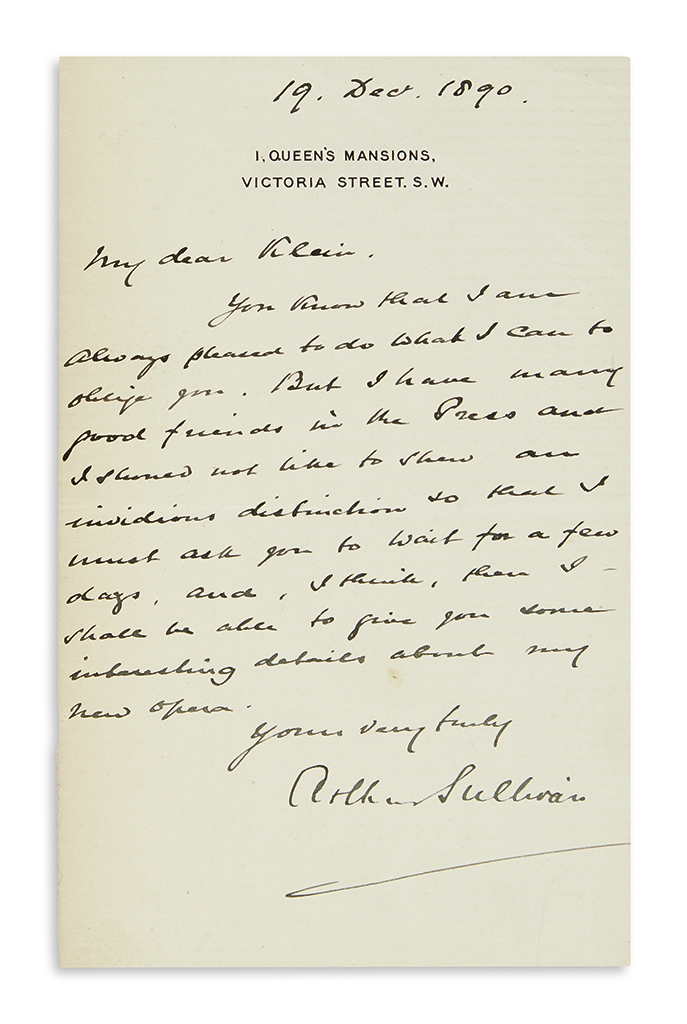 19. Decr. 1890.
1, QUEEN'S MANSIONS,
VICTORIA STREET. S.W.
My dear Klein.
You know that I am
always pleased to do what I can to
oblige you. But I have many
good friends in the Press and
I should not like to shew an
invidious distinction so that I
must ask you to wait for a few
days, and, I think, then I -
shall be able to give you some
interesting details about my
new opera.
Yours very truly
Arthur Sullivan